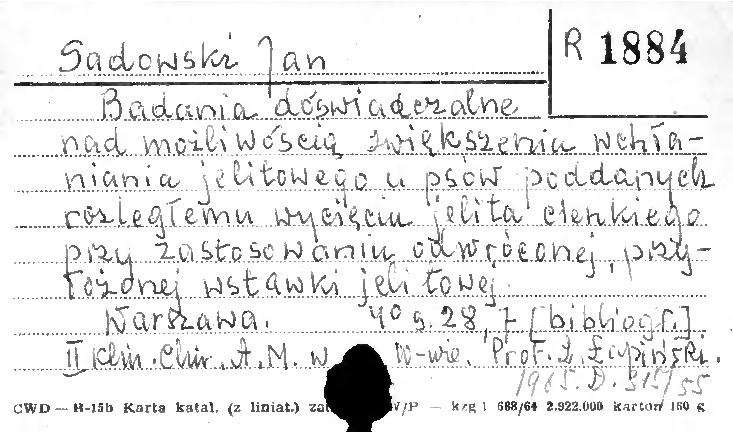 Sadowski Jan
R 1884
Badania doświadczalne
nad możliwością zwiększenia wchła-
niania jelitowego u psów poddanych
rozległemu wycięciu jelita cienkiego
przy zastosowaniu odwróconej, przy-
łożonej wstawki jelitowej.
Warszawa. 4° s. 28, [bibliogr.].
II Klin. Chir. A. M. w W-wie. Prof. Z. Łapiński.
1965. D. 315/55
CWD — H-15b Karta katal. (z liniat.) W/P — kzg 1 668/64 2.922.000 karton 160 g